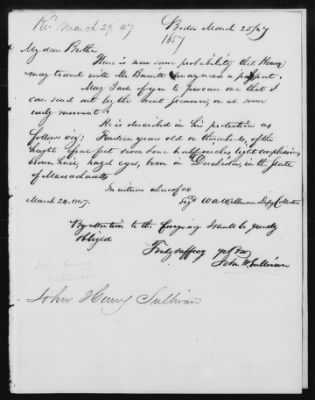 Recd March 29. 47
Boston March 25/47
1857
My dear Brother
There is now some probability that Henry
may travel with Mr
may need a passport.
May I ask of you to procure one that I
can send out by the next Steamer, or at some
early moment?
He is described in his protection as
follows viz: Fourteen years old or thereabouts, of the
height of four feet seven & one half inches, light complexion,
brown hair, hazel eyes, born in Dorchester, in the State
of Massachusetts
In witness whereof &c
March 24, 1847. Sigd Depy Collector
By attention to the foregoing I should be greatly
obliged
John W. Sullivan
John Henry
Sullivan
John Henry Sullivan